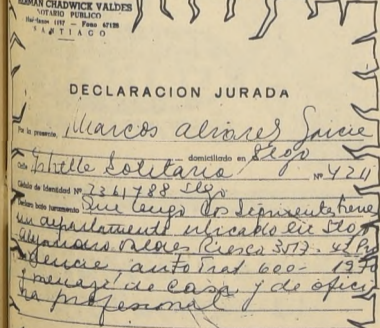 HERMAN CHADWICK VALDES
NOTARIO PUBLICO
SANTIAGO
DECLARACION JURADA
Por la presente, Marcos Alvarez
domiciliado en Stgo
Calle Estrella Solitaria Nº 4211
Cédula de Identidad Nº 2361788 Stgo
Declaro bajo juramento Que tengo los siguientes bienes
un departamento ubicado en Stgo
Alejandro Valdes Riesco 3517
auto Fiat 600 - 1970
y menaje de casa y de ofici
na profesional